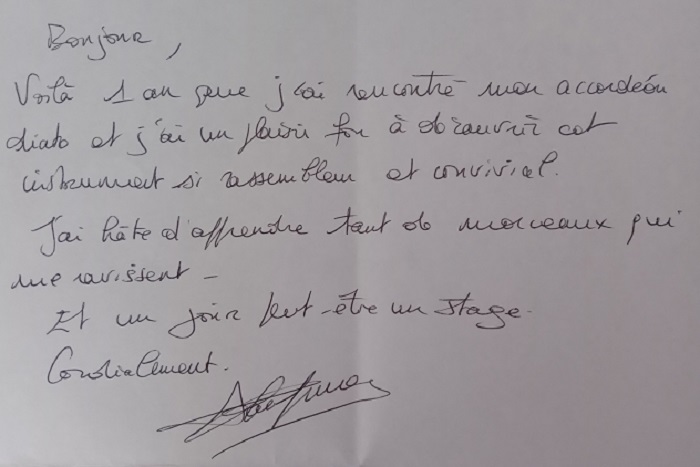 Bonjour,
Voilà 1 an que j'ai rencontré mon accordéon
diato et j'ai un plaisir fou à découvrir cet
instrument si rassembleur et convivial.
J'ai hâte d'apprendre tant de morceaux qui
me ravissent -
Et un jour peut-être un stage.
Cordialement.